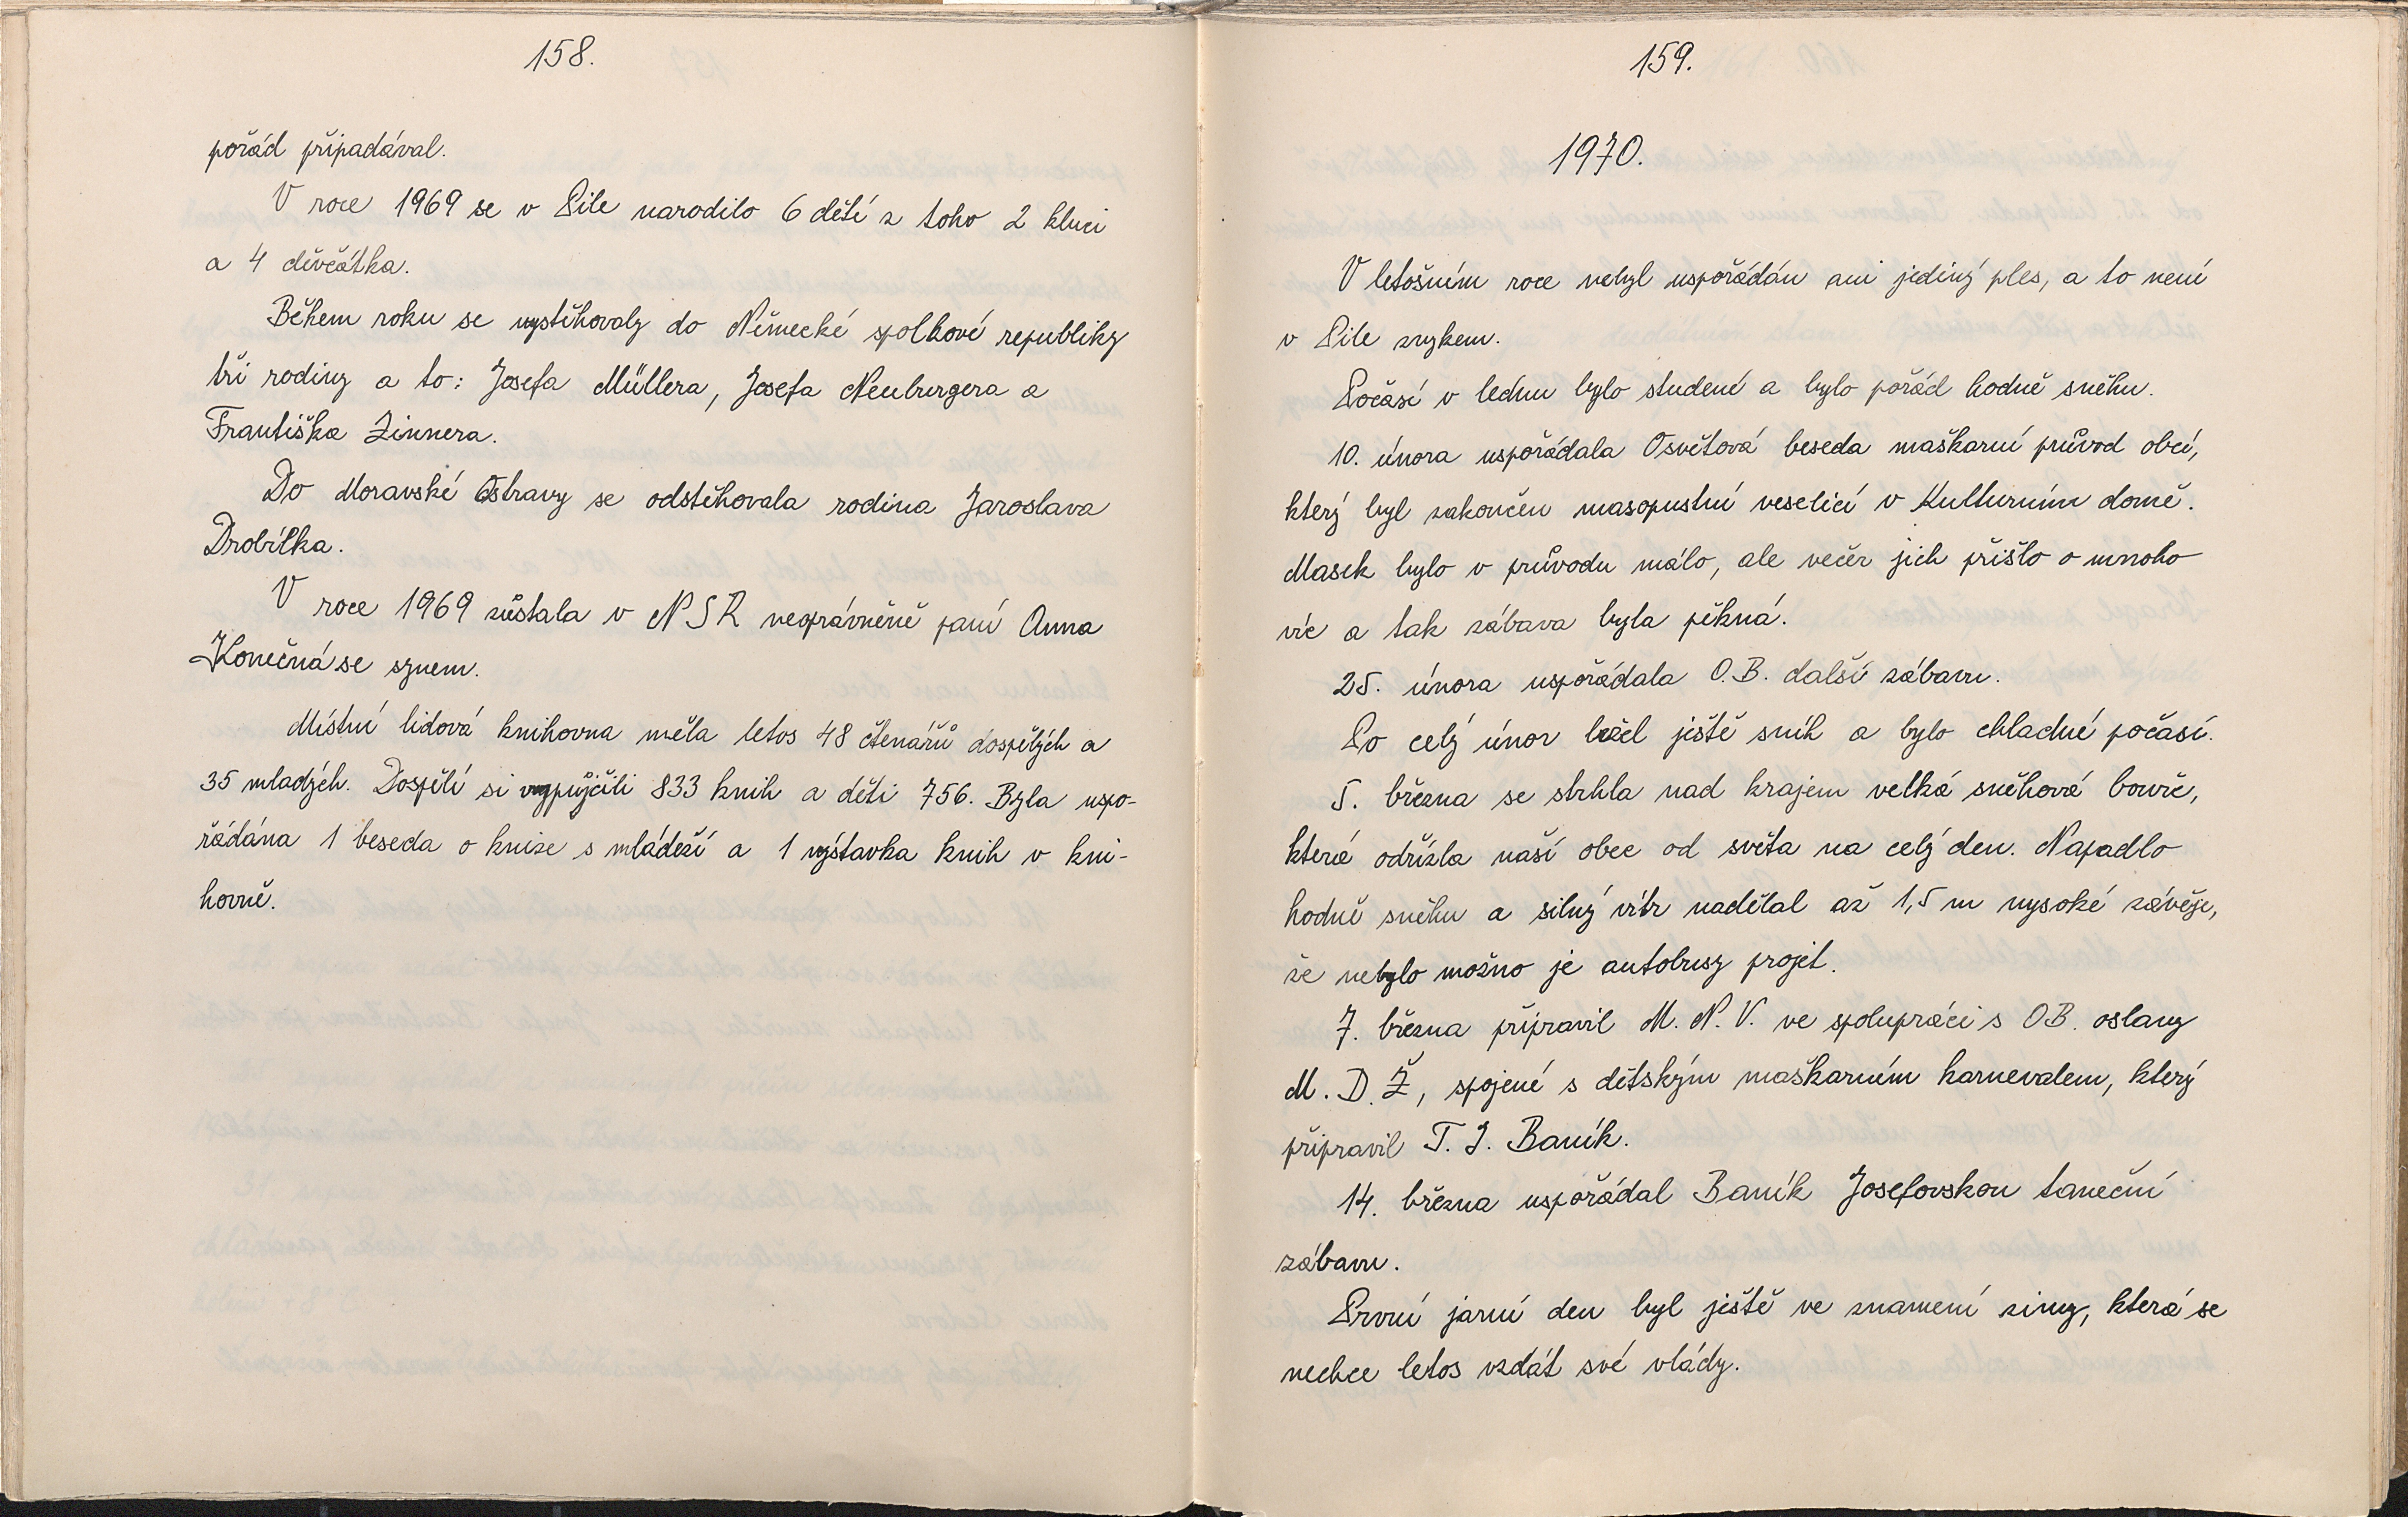 158.
pořád připadával.
V roce 1969 se v Pile narodilo 6 dětí z toho 2 kluci
a 4 děvčátka.
Během roku se vystěhovaly do Německé spolkové republiky
tři rodiny a to: Josefa Müllera, Josefa Neuburgera a
Františka Zinnera.
Do Moravské Ostravy se odstěhovala rodina Jaroslava
Drobílka.
V roce 1969 zůstala v NSR neoprávněně paní Anna
Konečná se synem.
Místní lidová knihovna měla letos 48 čtenářů dospělých a
35 mladých. Dospělí si vypůjčili 833 knih a děti 756. Byla uspo-
řádána 1 beseda o knize s mládeží a 1 výstavka knih v kni-
hovně.
159.
1970.
V letošním roce nebyl uspořádán ani jediný ples, a to není
v Pile zvykem.
Počasí v lednu bylo studené a bylo pořád hodně sněhu.
10. února uspořádala Osvětová beseda maškarní průvod obcí,
který byl zakončen masopustní veselicí v Kulturním domě.
Masek bylo v průvodu málo, ale večer jich přišlo o mnoho
víc a tak zábava byla pěkná.
25. února uspořádala O.B. další zábavu.
Po celý únor ležel ještě sníh a bylo chladné počasí.
5. března se strhla nad krajem velká sněhová bouře,
která odřízla naší obec od světa na celý den. Napadlo
hodně sněhu a silný vítr nadělal až 1,5 m vysoké závěje,
že nebylo možno je autobusy projet.
7. března připravil M. N. V. ve spolupráci s OB. oslavy
M. D. Ž, spojené s dětským maškarním karnevalem, který
připravil T. J. Baník.
14. března uspořádal Baník Josefovskou taneční
zábavu.
První jarní den byl ještě ve znamení zimy, která se
nechce letos vzdát své vlády.